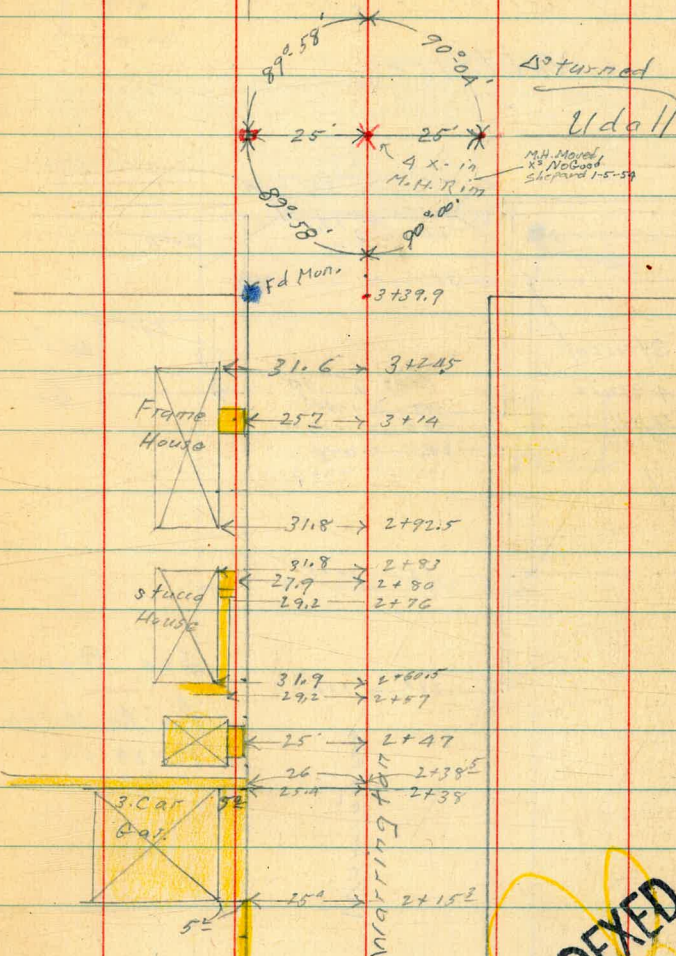 89°-58'
90°-04'
∆s turned
Udall
25' 25'
4 x- in
M.H. Rim
M.H. Moved
xs No Good
Shepard 1-5-54
89°-58'
90°-00'
Fd Mon.
3+39.9
31.6 3+24.5
Frame
House
25.7 3+14
31.8 2+92.5
31.8 2+83
27.9 2+80
29.2 2+76
Stucco
House
31.9 2+60.5
29.2 2+57
25' 2+47
26 2+38.5
25.4 2+38
3.Car
Gar.
25.4 2+15
INDEXED